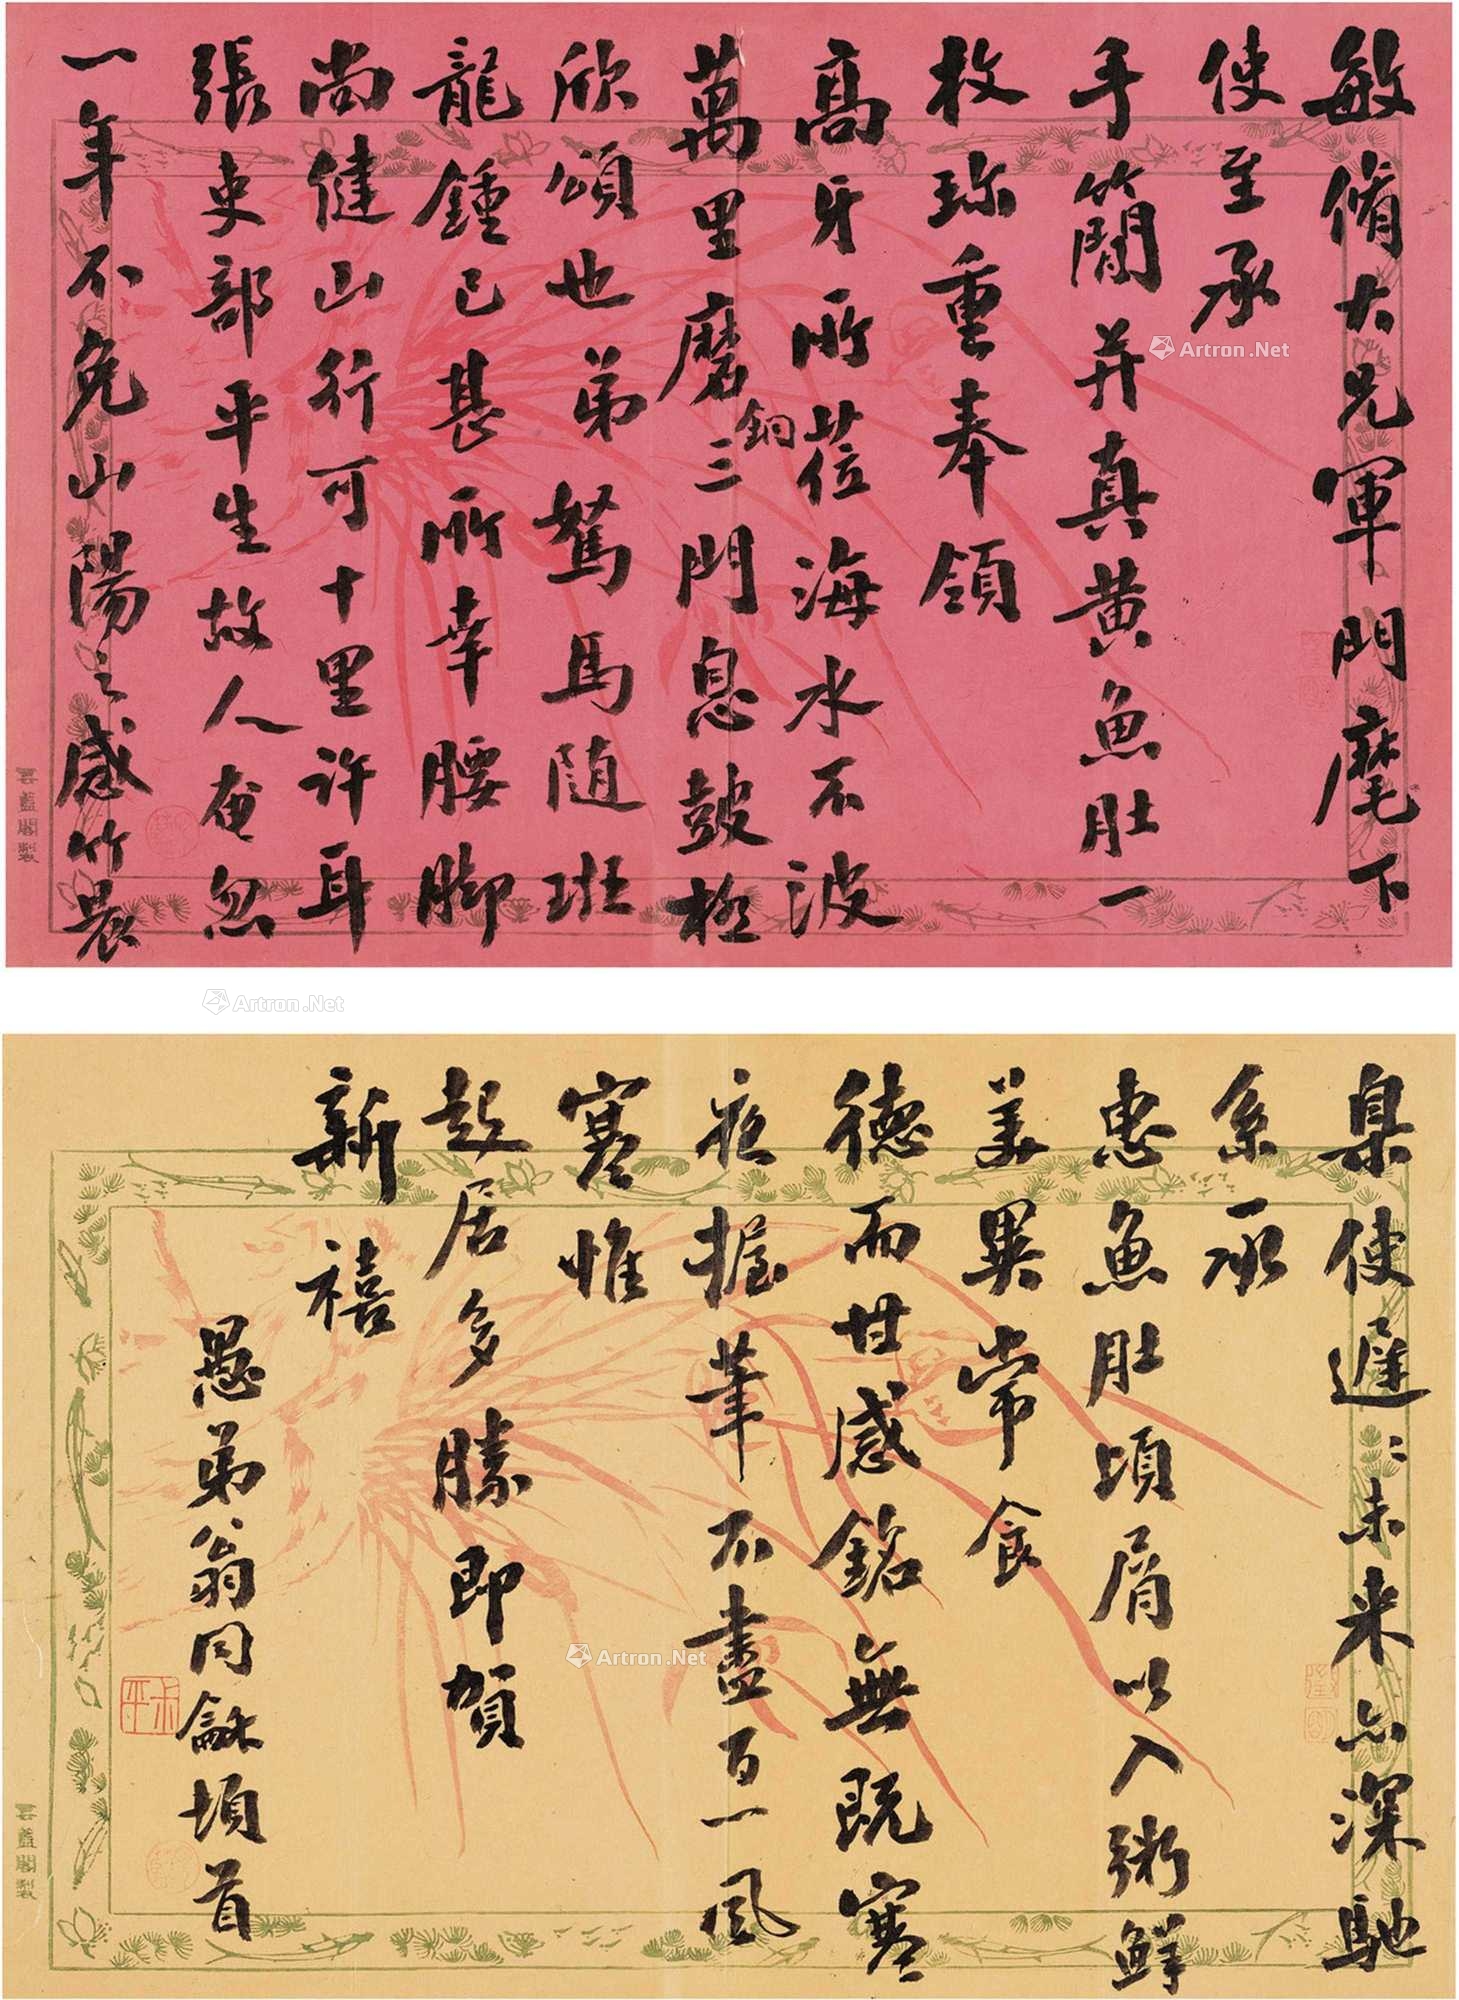 敏脩大兄軍門麾下
使至承
手簡并真黃魚肚一
枚珍重奉領
高牙所莅海水不波
萬里銅磨三門息鼓極
欣頌也弟駑馬隨班
龍鍾已甚所幸腰脚
尚健山行可十里許耳
張吏部平生故人奄忽
一年不免山陽之感竹農
雲藍閣製
Artron.Net
Artron.Net
臬使遲遲未來亦深馳
系承
惠魚肚頃屑以入粥鮮
美異常食
德而甘感銘無既寒
夜握筆不盡百一風
寒惟
起居多勝即賀
新禧
愚弟翁同龢頓首
叔平
雲藍閣製
Artron.Net